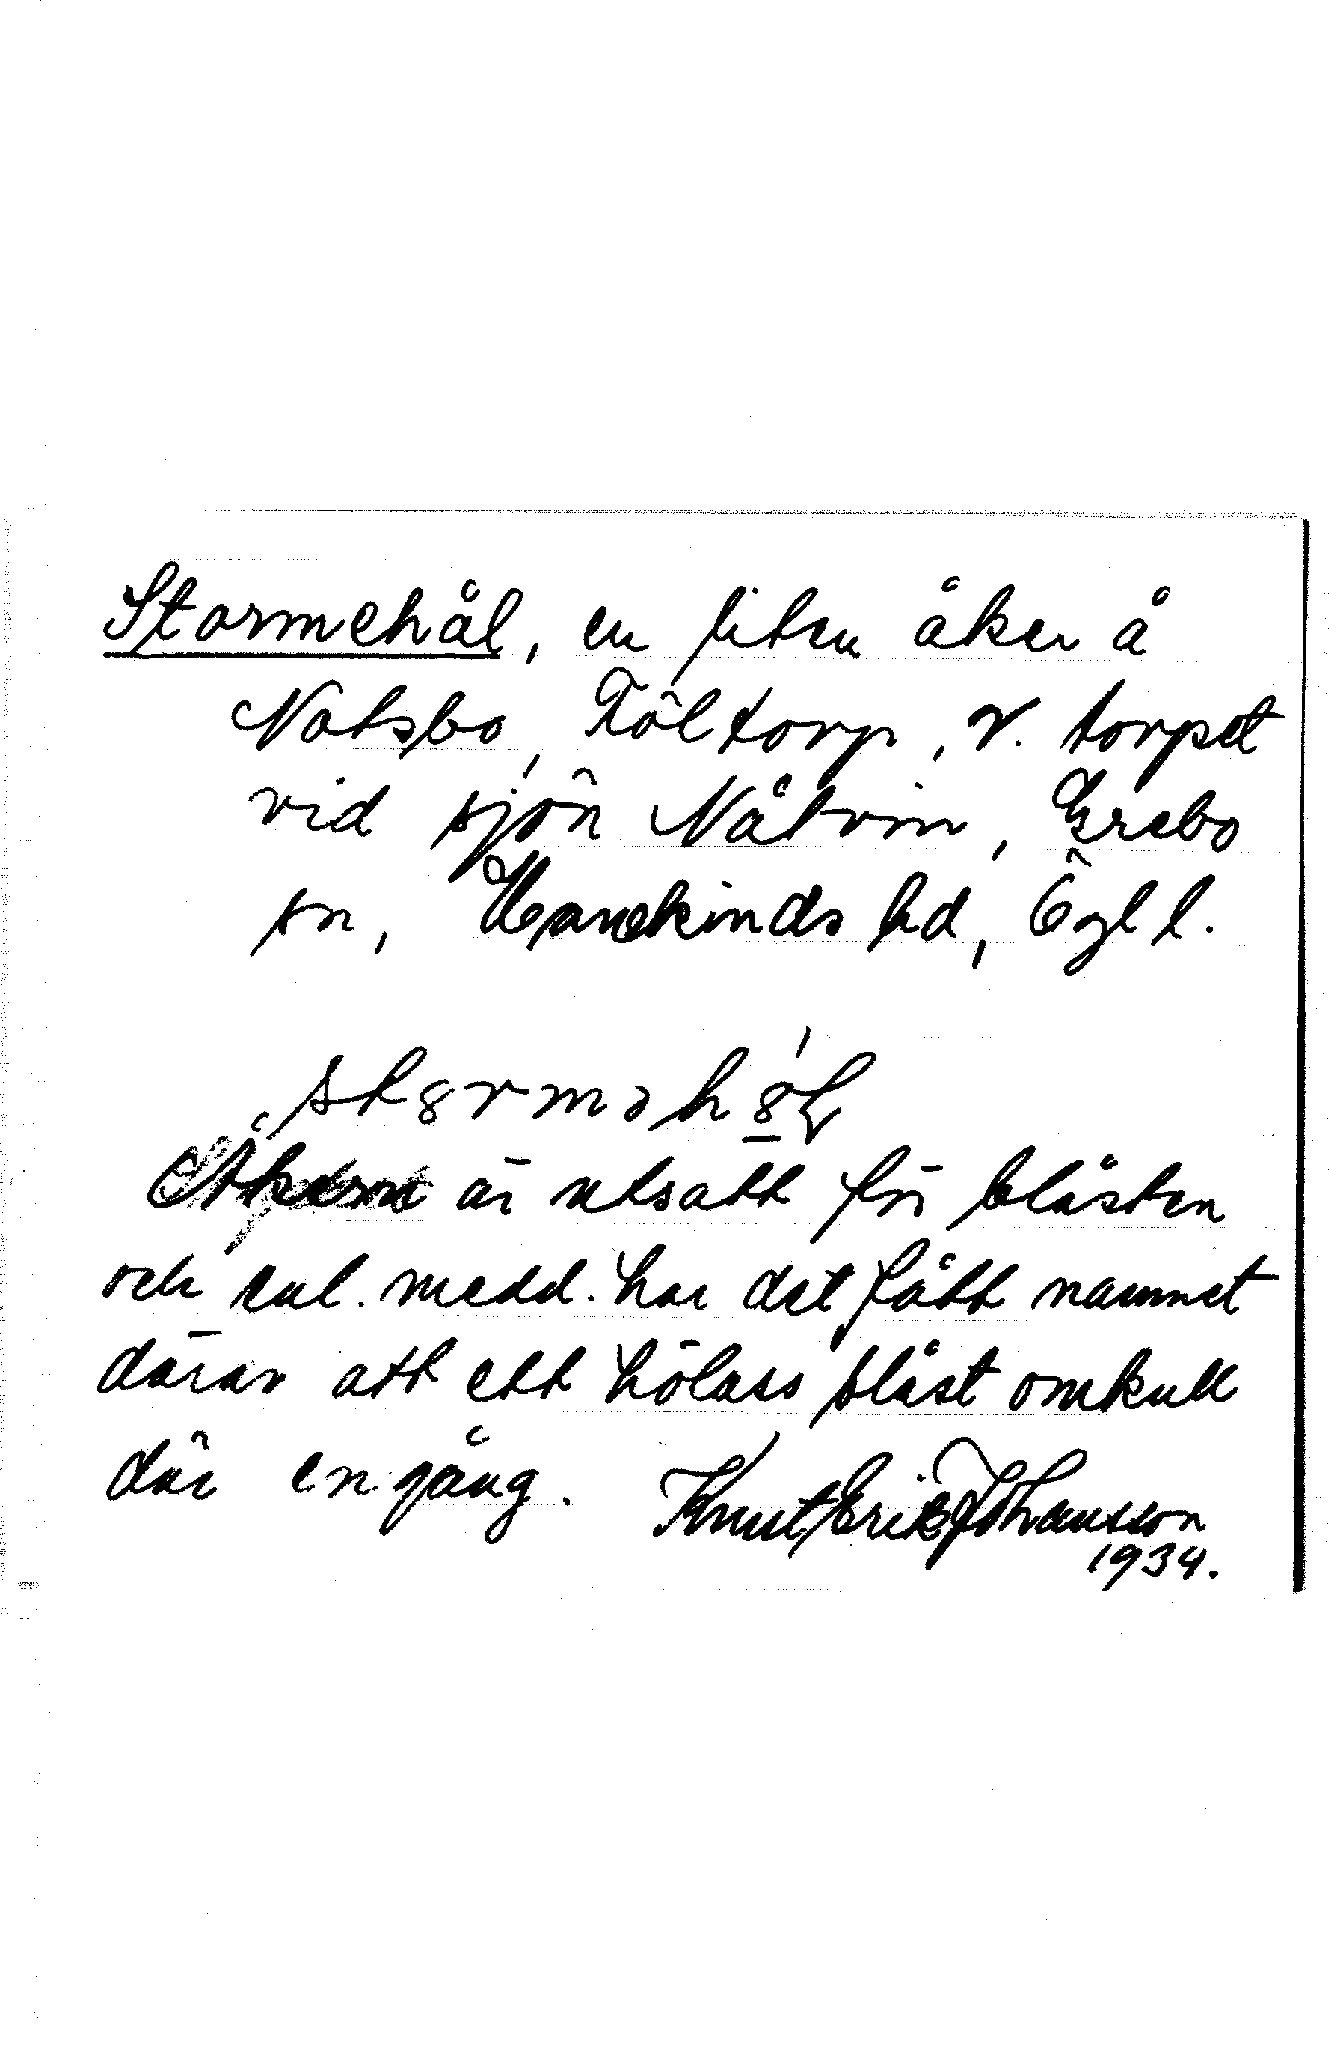 Stormehål, en liten åker å
Natsbo, Föltorp, v. torpet
vid sjön Nåtvin, Grebo
sn, Hanekinds hd, Ögl l.
st8rməh8̲́ɽ
är utsatt för blåsten
och enl. medd. har det fått namnet
därav att ett hölass blåst omkull
där en gång. Knut Erik Johansson
1934.